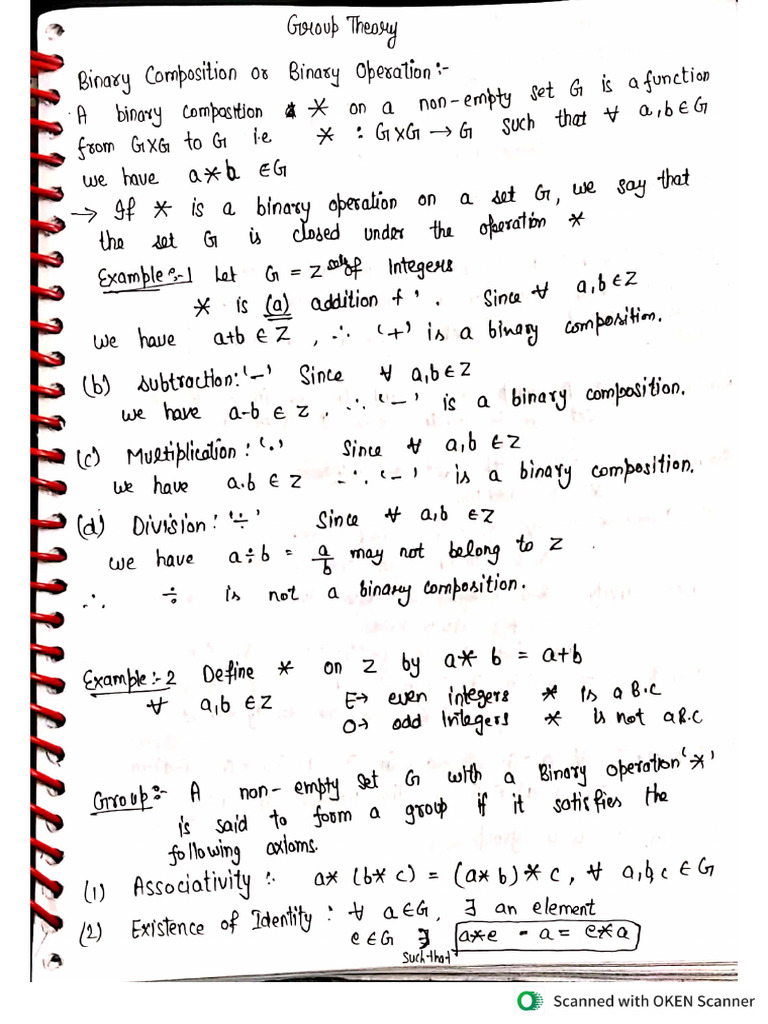 Group Theory
Binary Composition or Binary Operation:-
A binary composition * on a non-empty set G is a function
from G×G to G i.e * : G×G → G such that ∀ a,b ∈ G
we have a*b ∈ G
→ If * is a binary operation on a set G, we say that
the set G is closed under the operation *
Example:-1 Let G = Z set of Integers
* is (a) addition +'. Since ∀ a,b ∈ Z
we have a+b ∈ Z, ∴ '+' is a binary composition.
(b) Subtraction: '-' Since ∀ a,b ∈ Z
we have a-b ∈ Z, ∴ '-' is a binary composition.
(c) Multiplication: '.' Since ∀ a,b ∈ Z
we have a.b ∈ Z ∴ '-' is a binary composition.
(d) Division: '÷' Since ∀ a,b ∈ Z
we have a÷b = a/b may not belong to Z.
∴ ÷ is not a binary composition.
Example:-2 Define * on Z by a*b = a+b
∀ a,b ∈ Z E→ even integers * is a B.C
O→ odd Integers * is not a B.C
Group:- A non-empty set G with a Binary operation '*'
is said to form a group if it satisfies the
following axioms.
(1) Associativity:- a*(b*c) = (a*b)*c, ∀ a,b,c ∈ G
(2) Existence of Identity: ∀ a∈G, ∃ an element
e∈G ∋ a*e = a = e*a
Such that
Scanned with OKEN Scanner